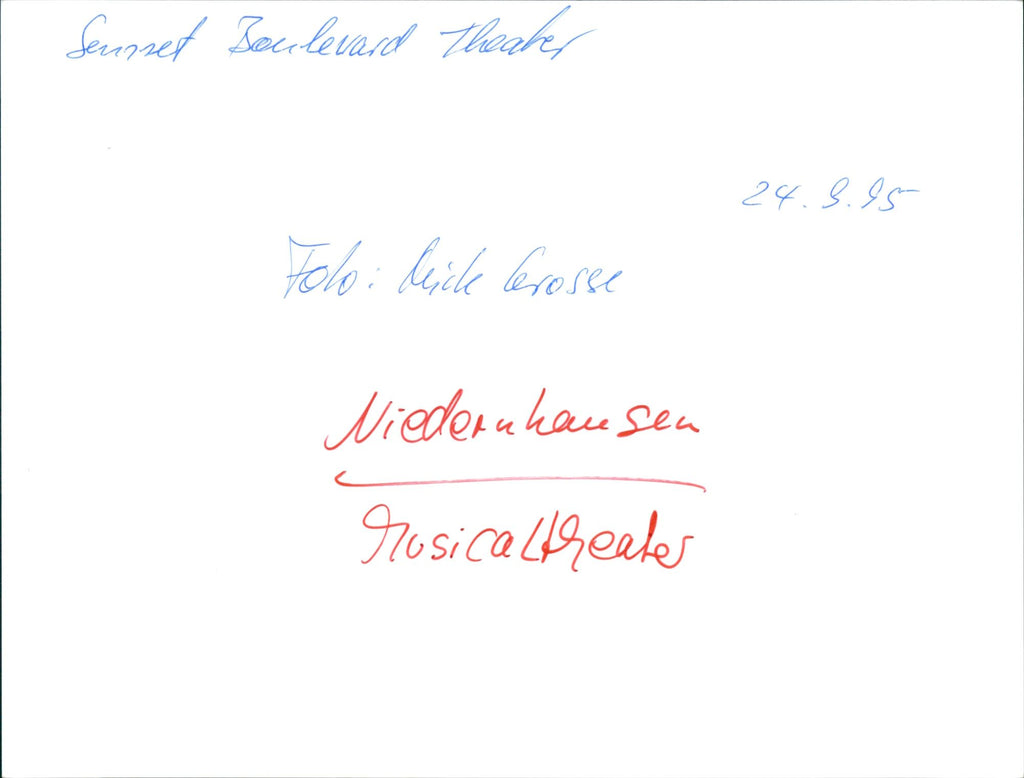 Sunset Boulevard Theater
24.9.95
Foto: Mick Grosse
Niedernhausen
Musicaltheater